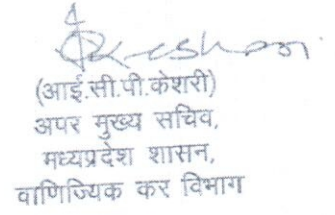 (आई.सी.पी.केशरी)
अपर मुख्य सचिव,
मध्यप्रदेश शासन,
वाणिज्यिक कर विभाग